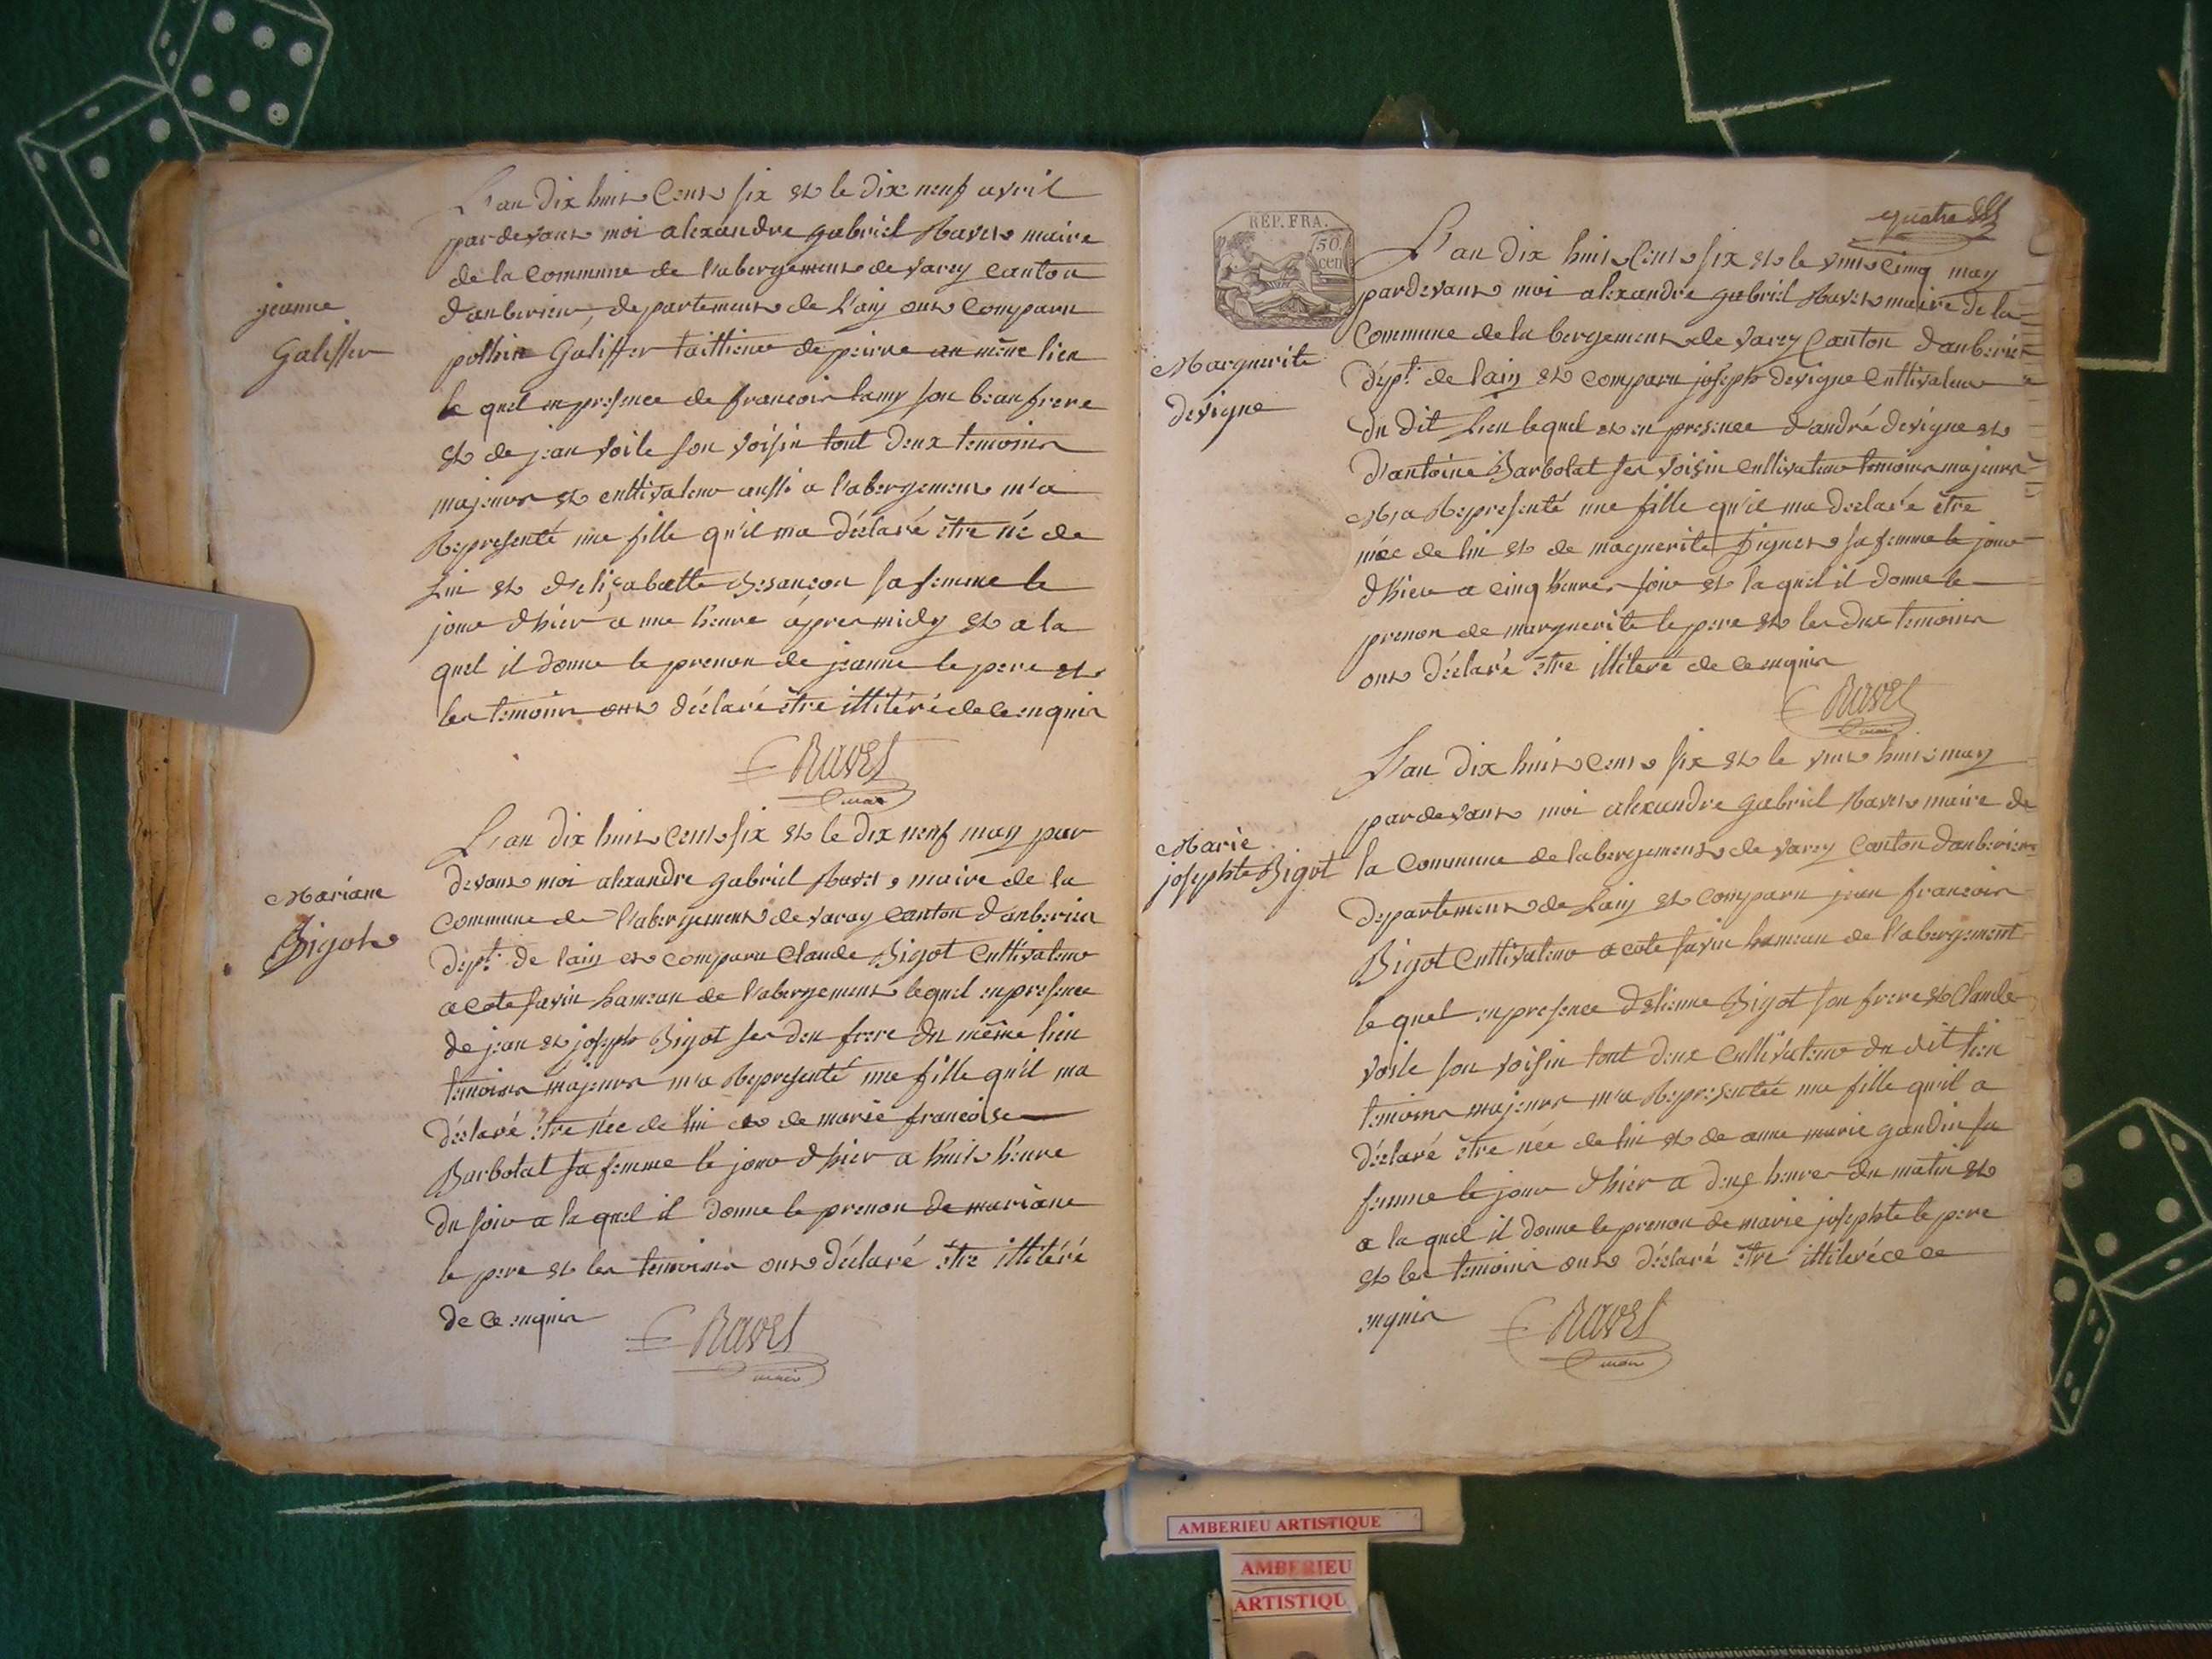 L'an dix huit cent six et le dix neuf avril
pardevant moi alexandre gabriel Ravet maire
de la commune de l'abergement de varey canton
d'anberieu, departement de L'ain ont comparu
pothin Galiffer taillieur de peirre au même lieu
le quel en presence de francois lamy son beau frere
et de jean voile son voisin tout deux temoins
majeurs et cultivateur aussi a l'abergement m'a
Representé une fille qu'il ma déclaré être né de
Lui et d'elisabette Besançon sa femme le
jour d'hier a une heure âpres midy et a la
quel il donne le prenon de jeanne le pere et
les temoins ont déclaré être illitéré de ce enquis
Ravet
maire
jeanne
Galiffer
L'an dix huit cent six et le dix neuf may par
devant moi alexandre gabriel Ravet maire de la
commune de l'abergement de varay canton d'anberieu
dept. de l'ain et comparu Claude Bigot Cultivateur
a cote savin hameau de l'abergement lequel en presence
de jean et joseph Bigot ses deu frere du même lieu
temoins majeurs m'a Representé une fille qu'il ma
déclaré être née de lui et de marie francoise
Barbolat sa femme le jour d'hier a huit heure
du soir a la quel il donne le prenon de mariane
le pere et les temoins ont déclaré être illitéré
de ce enquis
Ravet
maire
Mariane
Bigot
quatre
REP. FRA.
50
cent
L'an dix huit Cent six et le vint cinq may
pardevant moi alexandre gabriel Ravet maire de la
Commune de la bergement de varey Canton d'anberieu
dept. de l'ain et comparu joseph devigne Cultivateur
du dit Lieu lequel et en presence d'andré devigne et
d'antoine Barbolat ses voisin cultivateur temoins majeurs
M'a Representé une fille qu'il ma declaré être
née de lui et de maguerite Bignet sa femme le jour
d'hier a cinq heures soir et la quel il donne le
prenon de marguerite le pere et les dux temoins
ont déclaré être illiteré de ce enquis
Ravet
maire
Marguerite
devigne
L'an dix huit cent six et le vint huit may
pardevant moi alexandre gabriel Ravet maire de
la Commune de l'abergement de varey Canton d'anberieu
departement de L'ain et comparu jean francois
Bigot Cultivateur a cote savin hameau de l'abergement
le quel en presence d'etienne Bigot son frere et Claude
voile son voisin tout deux Cultivateur du dit lieu
temoins majeurs m'a Representée une fille qu'il a
déclaré être née de lui et de anne marie gaudin sa
femme le jour d'hier a deux heures du matin et
a la quel il donne le prenon de marie josephte le pere
et les temoins ont déclaré être illiteré de ce
enquis
Ravet
maire
Marie
josephte Bigot
AMBERIEU ARTISTIQUE
AMBERIEU
ARTISTIQU